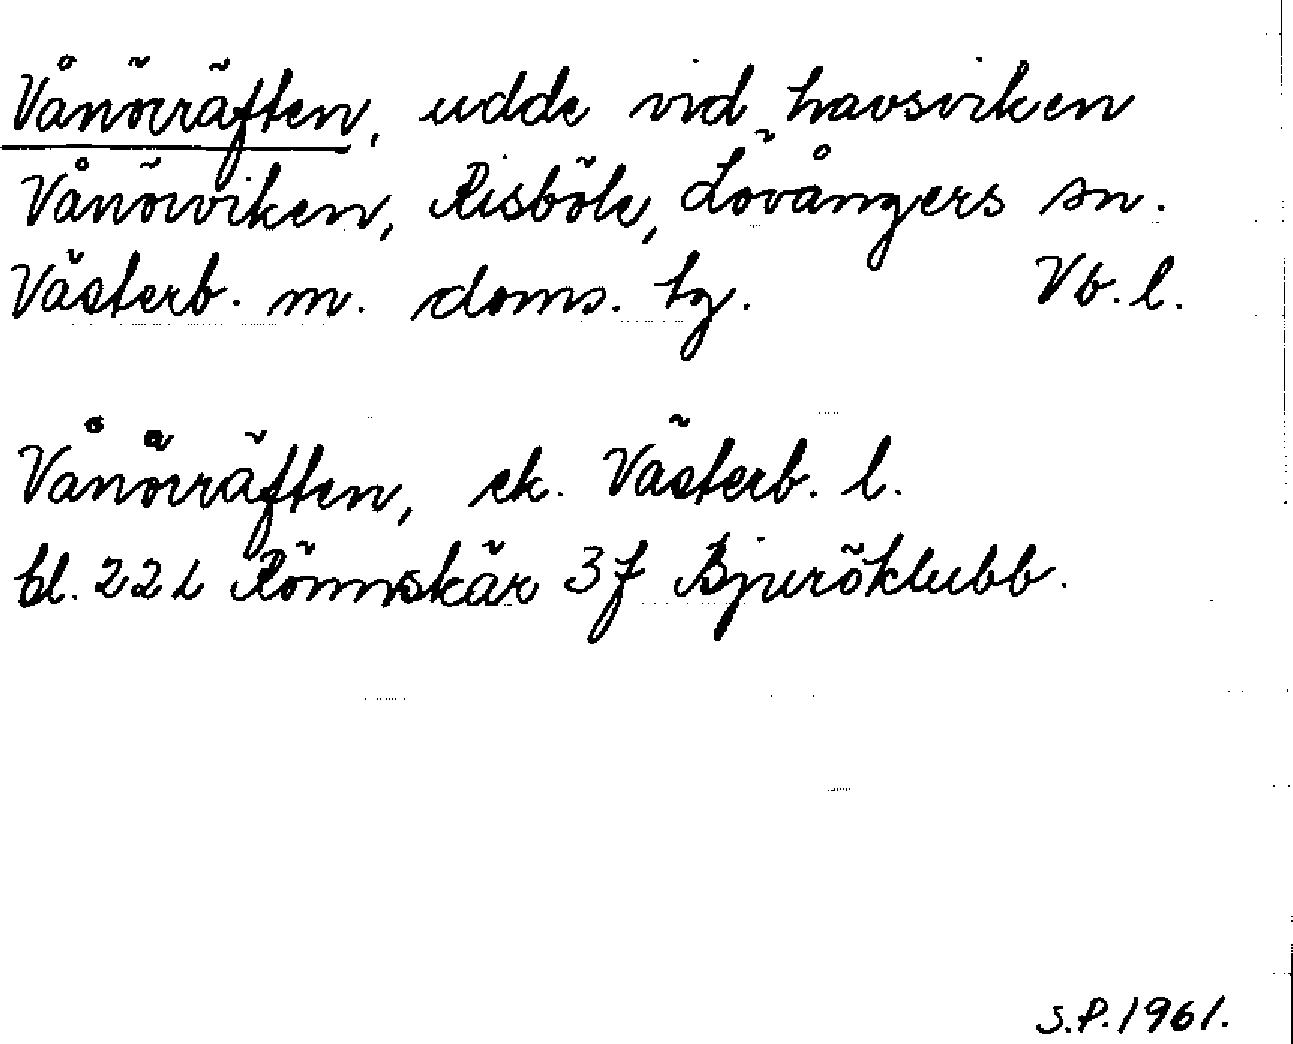 Vånörräften, udde vid havsviken
Vånörviken, Risböle, Lövångers sn.
Västerb. m. doms. tg. Vb. l.
Vånörräften, ek. Västerb. l.
bl. 22 L Rönnskär 3f Bjuröklubb.
S.P. 1961.